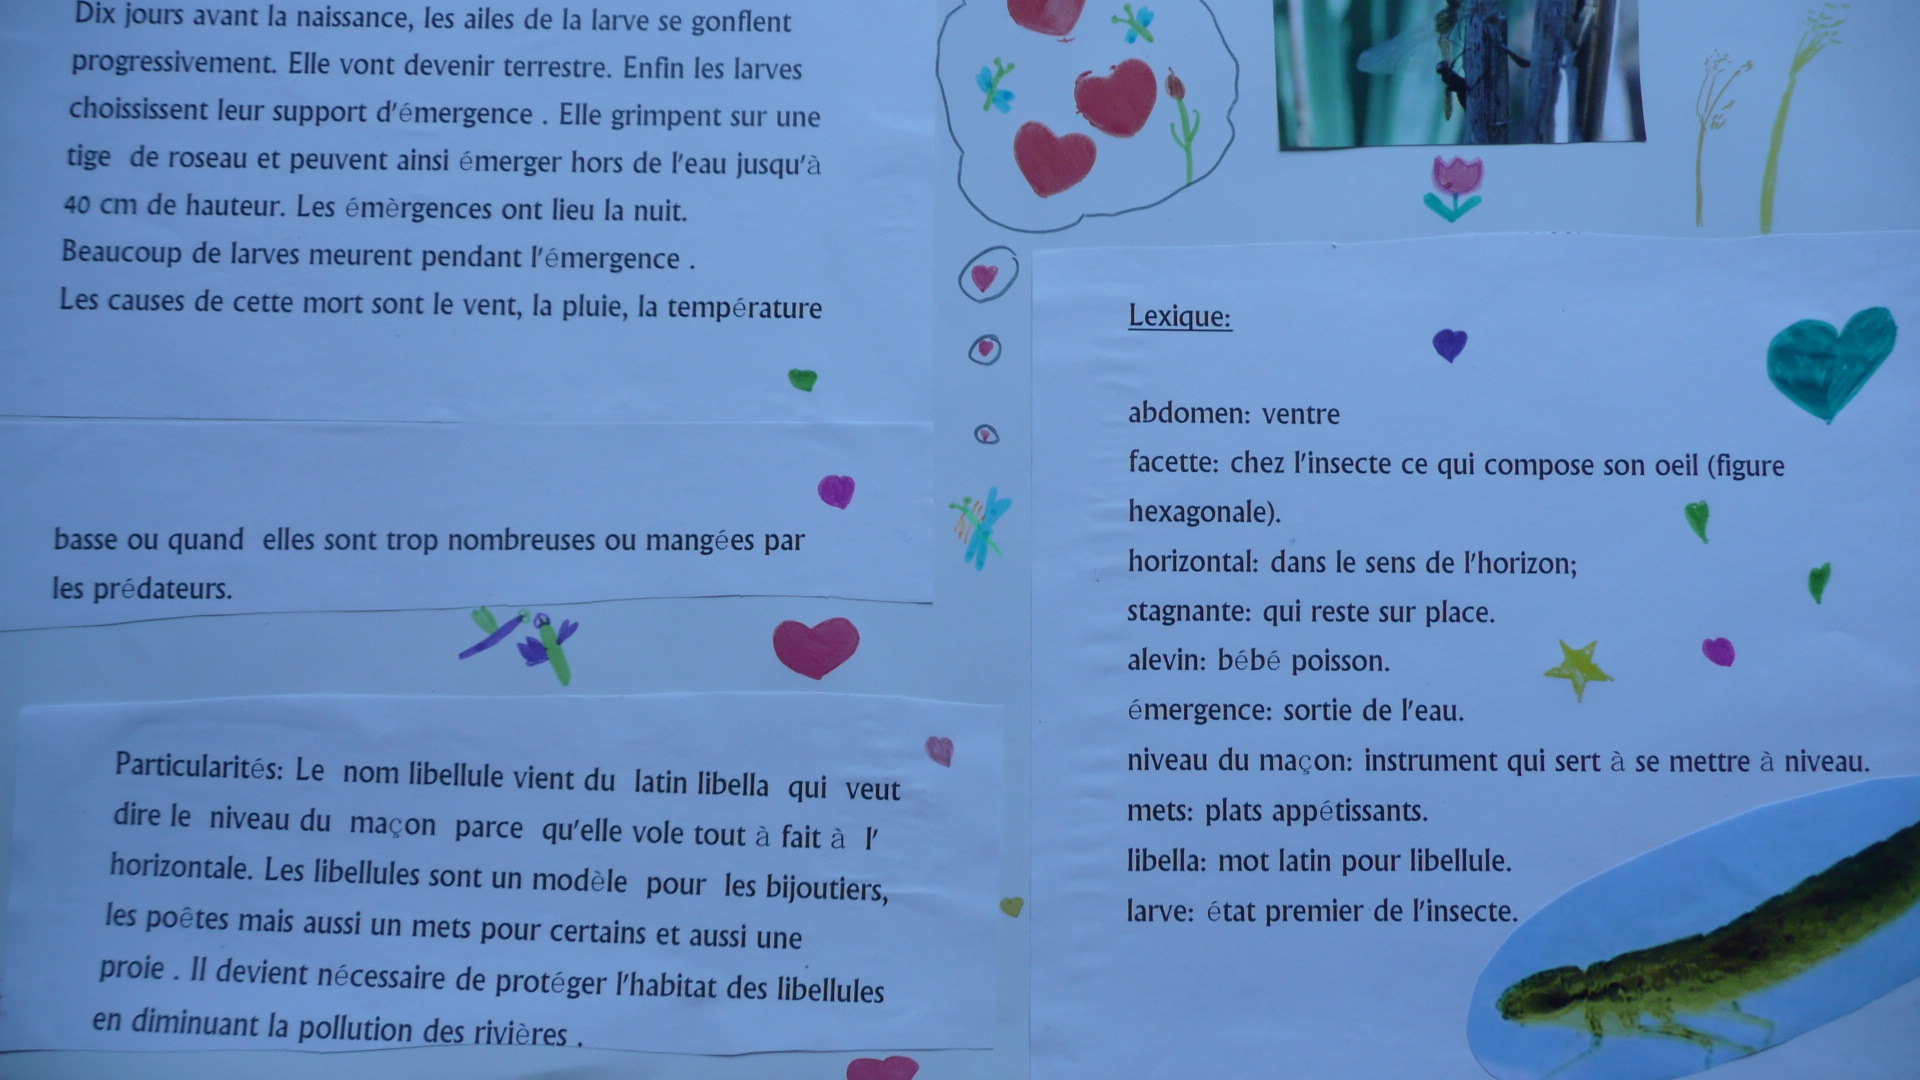 Dix jours avant la naissance, les ailes de la larve se gonflent
progressivement. Elle vont devenir terrestre. Enfin les larves
choississent leur support d'émergence . Elle grimpent sur une
tige de roseau et peuvent ainsi émerger hors de l'eau jusqu'à
40 cm de hauteur. Les émèrgences ont lieu la nuit.
Beaucoup de larves meurent pendant l'émergence .
Les causes de cette mort sont le vent, la pluie, la température
basse ou quand elles sont trop nombreuses ou mangées par
les prédateurs.
Particularités: Le nom libellule vient du latin libella qui veut
dire le niveau du maçon parce qu'elle vole tout à fait à l'
horizontale. Les libellules sont un modèle pour les bijoutiers,
les poêtes mais aussi un mets pour certains et aussi une
proie . Il devient nécessaire de protéger l'habitat des libellules
en diminuant la pollution des rivières .
Lexique:
abdomen: ventre
facette: chez l'insecte ce qui compose son oeil (figure
hexagonale).
horizontal: dans le sens de l'horizon;
stagnante: qui reste sur place.
alevin: bébé poisson.
émergence: sortie de l'eau.
niveau du maçon: instrument qui sert à se mettre à niveau.
mets: plats appétissants.
libella: mot latin pour libellule.
larve: état premier de l'insecte.